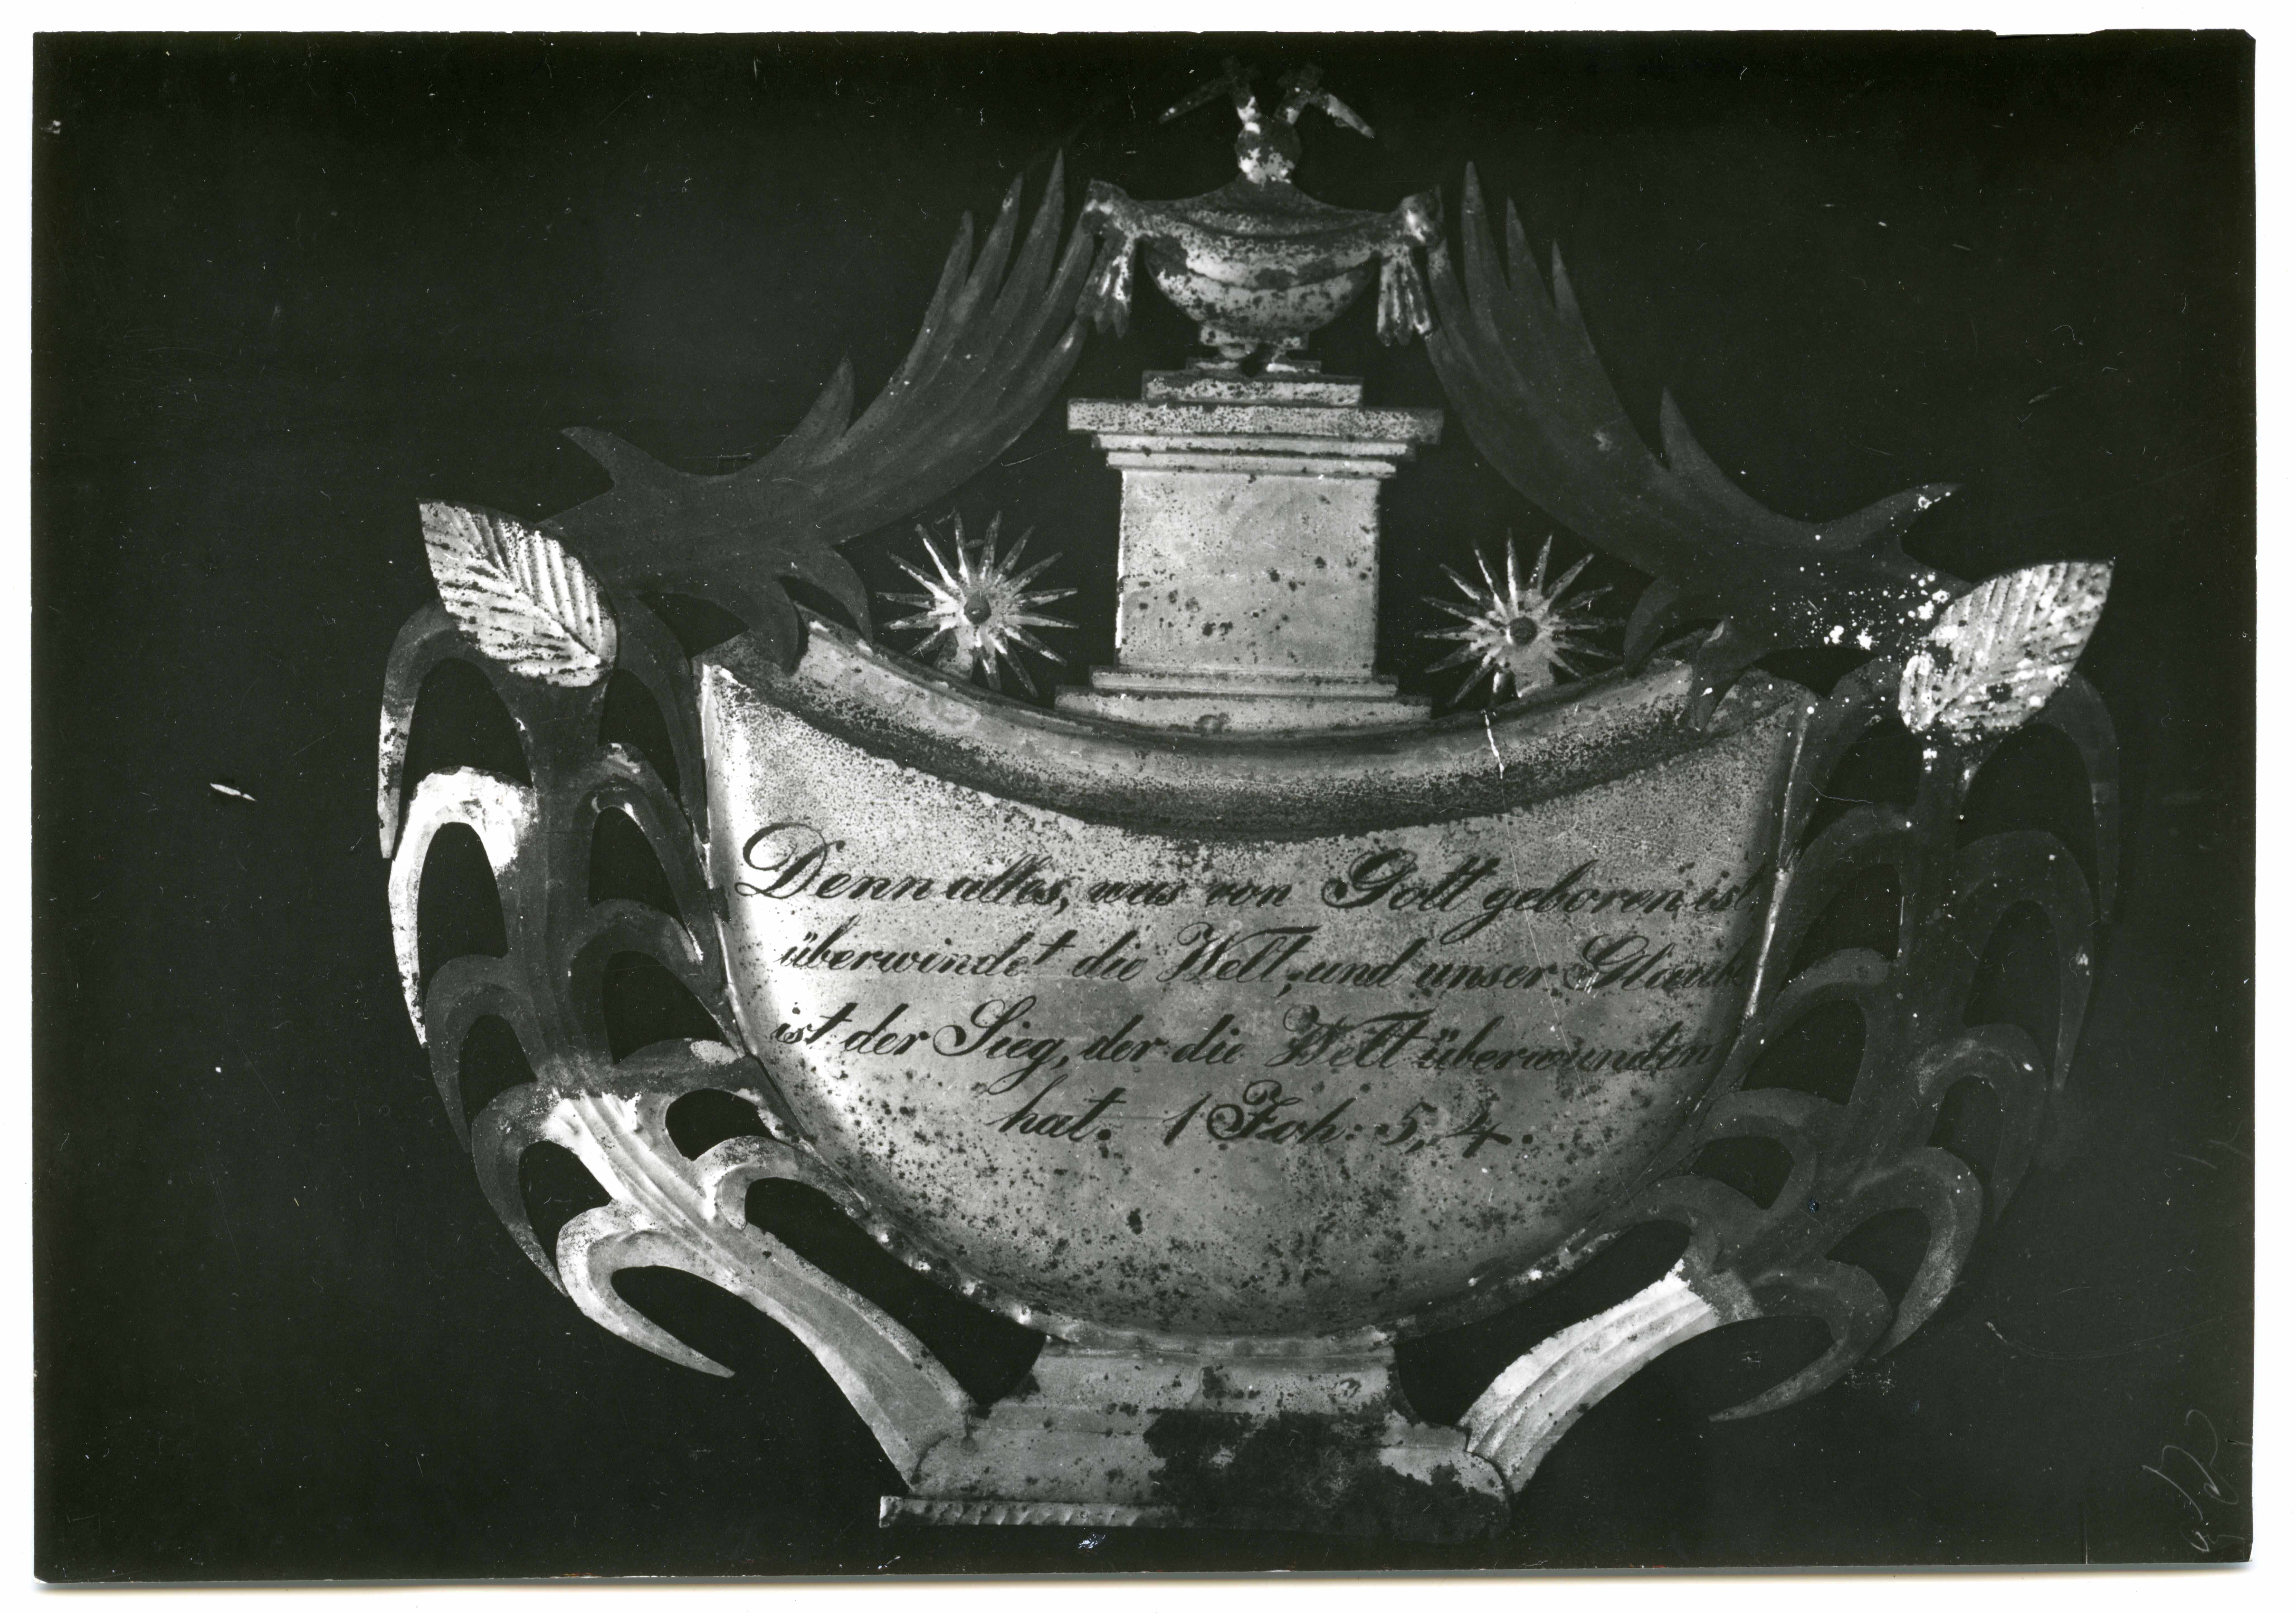 Denn alles, was von Gott geboren ist,
überwindet die Welt; und unser Glaube
ist der Sieg, der die Welt überwunden
hat. 1 Joh. 5, 4.